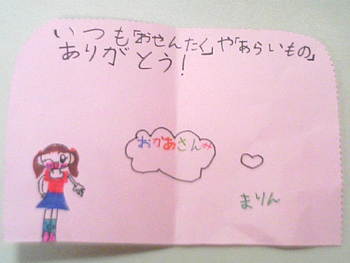 いつも「おせんたく」や「あらいもの」
ありがとう!
おかあさんへ
まりん